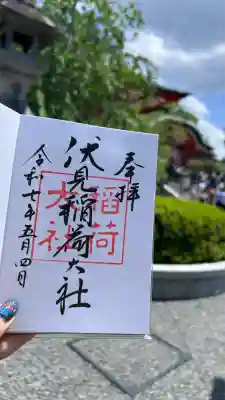 奉拝
伏見稲荷大社
稲荷大社
令和七年五月四日